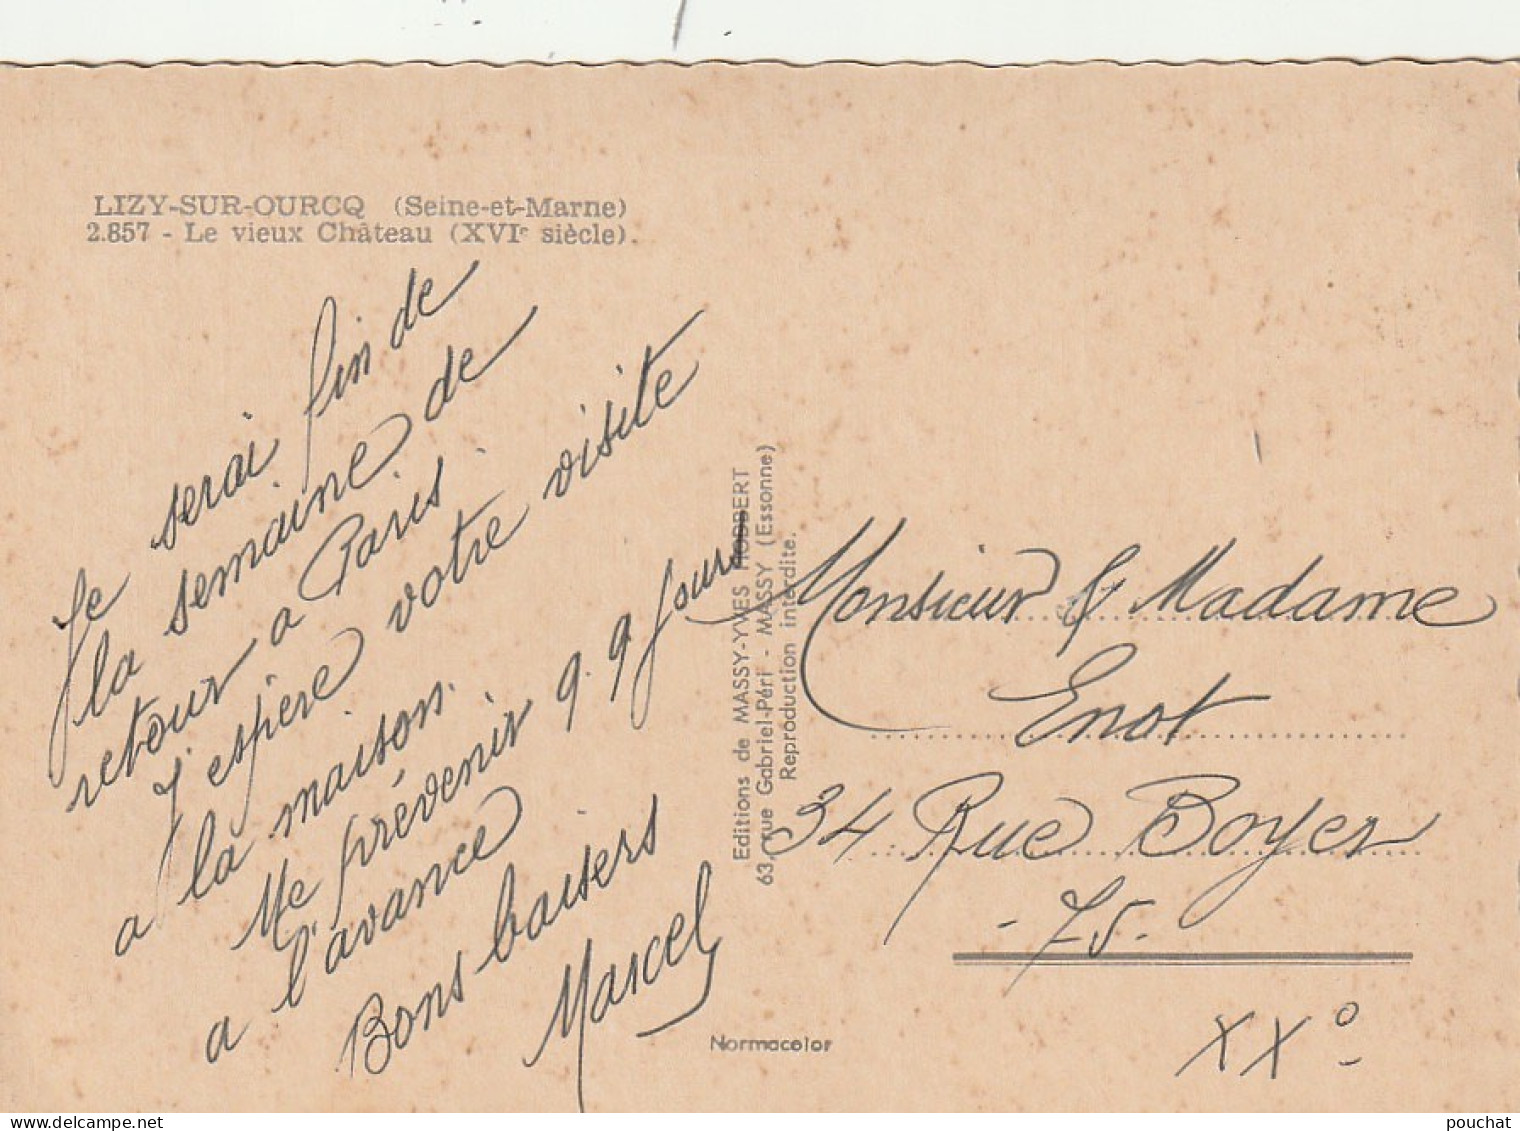 LIZY-SUR-OURCQ (Seine-et-Marne)
2.857 - Le vieux Château (XVIe siècle).
Je serai fin de
la semaine de
retour a Paris.
J'espère votre visite
a la maison.
Me prévenir q.q jours
a l'avance
Bons baisers
Marcel
Editions de MASSY-YVES HODBERT
63, rue Gabriel-Péri - MASSY (Essonne)
Reproduction interdite.
Normacolor
Monsieur & Madame
Enot
34 Rue Boyer
- 75 -
XXº
delcampe.net
pouchat